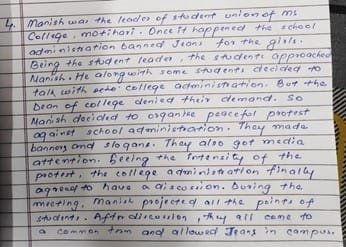 4. Manish was the leader of student union of MS
College, motihari. Once it happened the school
administration banned Jeans for the girls.
Being the student leader, the students approached
Manish. He alongwith some students decided to
talk with college administration. But the
Dean of college denied their demand. So
Manish decided to organise peaceful protest
against school administration. They made
banners and slogans. They also got media
attention. Seeing the intensity of the
protest, the college administration finally
agreed to have a discussion. During the
meeting, Manish projected all the points of
students. After discussion, they all come to
a common term and allowed Jeans in campus.